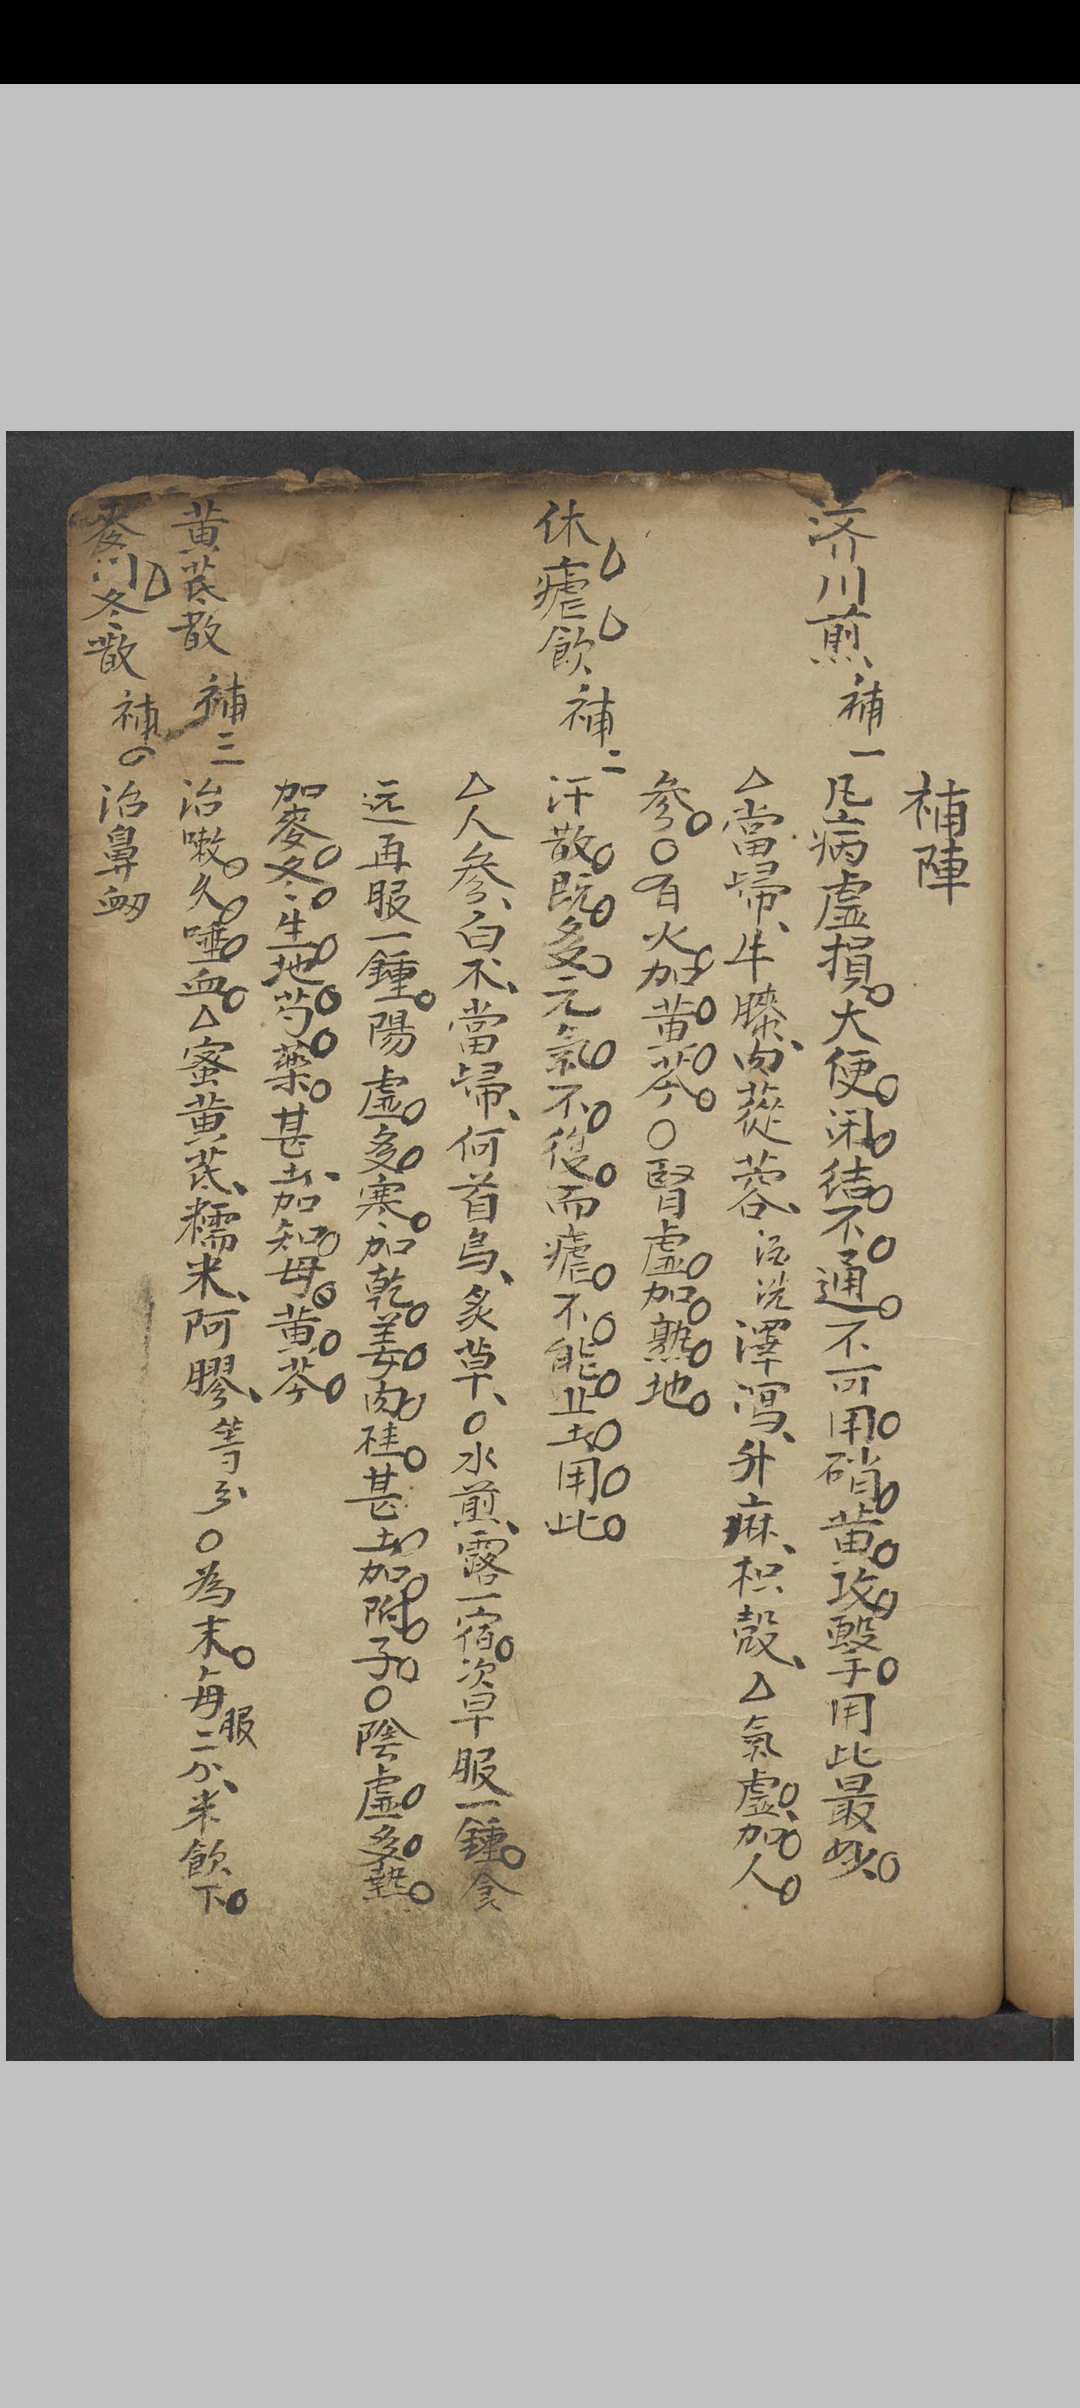 補陣
济川煎 補一 凡病虛損大便闭結不通不可用硝黄攻擊用此最妙
△當歸、牛膝、肉蓯蓉、酒洗 澤瀉、升麻、枳殼、△氣虛加人
參〇有火加黄芩〇腎虛加熟地
休瘧飲 補二 汗散既多元氣不復而瘧不能止㐧用此
△人參、白朮、當歸、何首烏、炙草、〇水煎、露一宿次早服一鍾食
远再服一鍾陽虛多寒加乾姜肉桂甚㐧加附子〇陰虛多熱
加麥冬生地芍藥甚㐧加知母黄芩
黄芪散 補三 治嗽久唾血△蜜黄芪、糯米、阿膠、等分〇為末每服二分、米飲下
麥门冬散 補四 治鼻衂